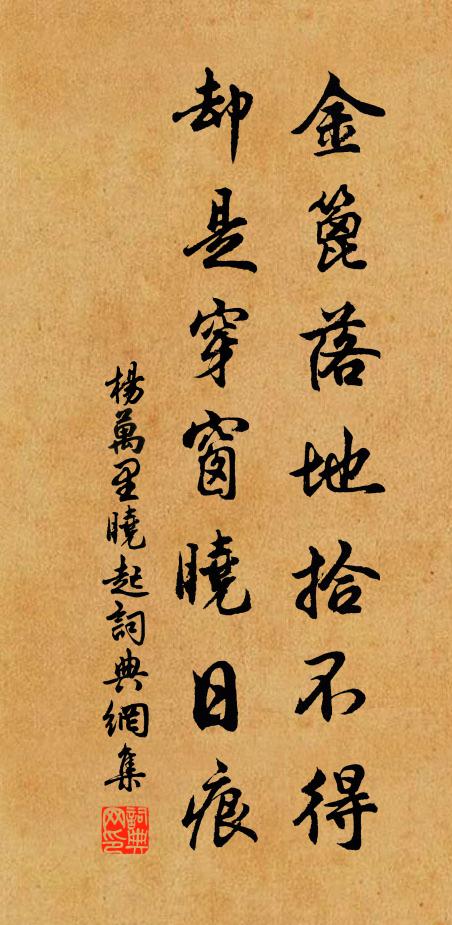 金篦落地拾不得
却是穿窗曉日痕
楊萬里曉起詞典網集
詞典网印